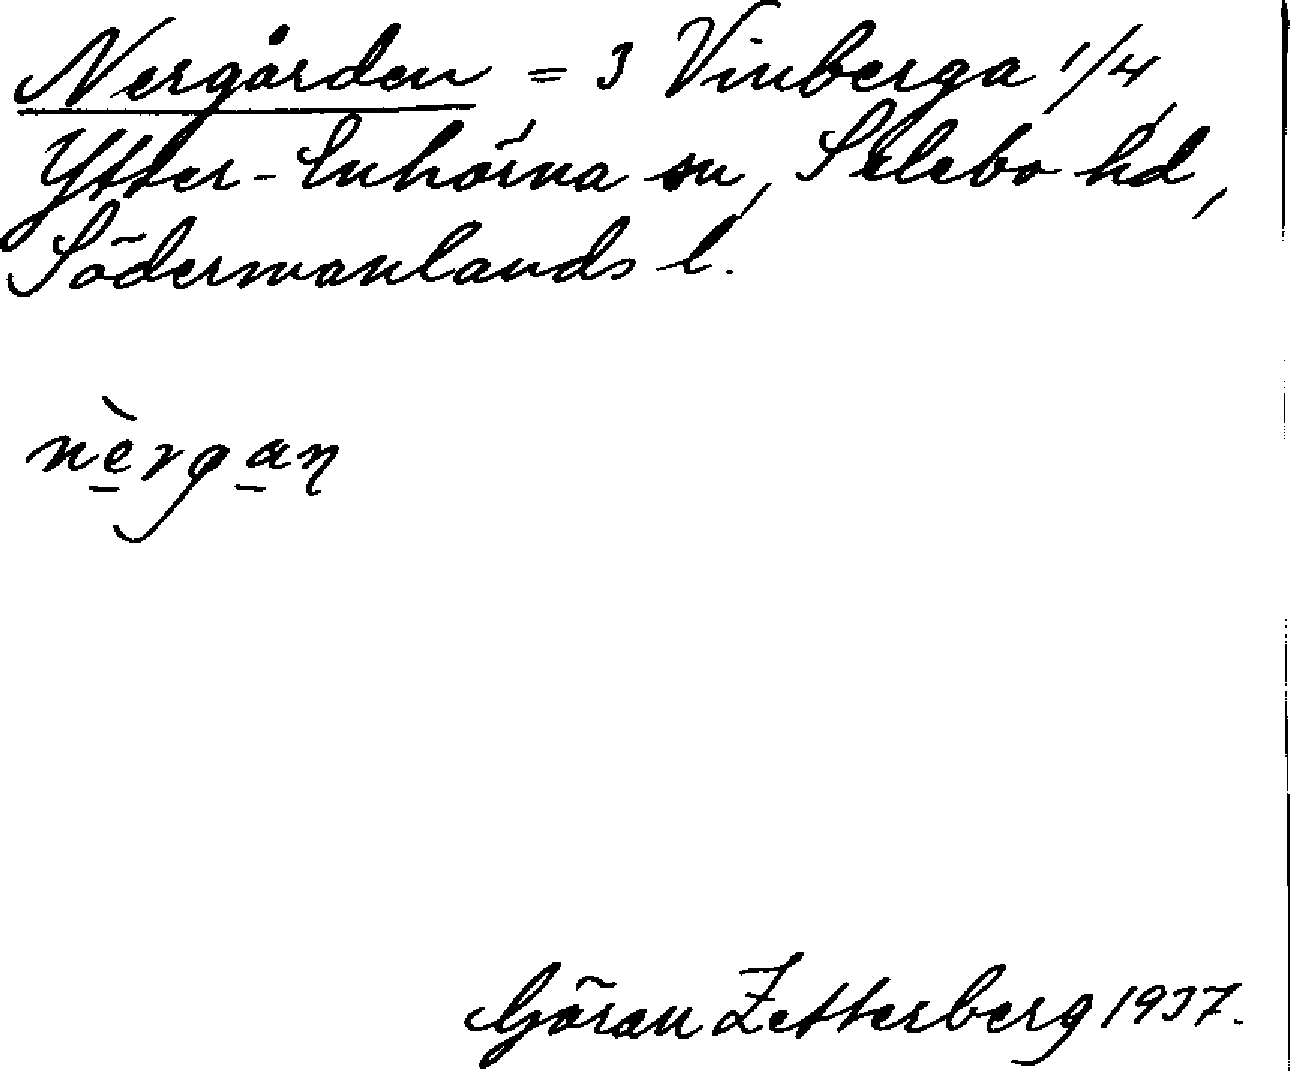 Nergården = 3 Vinberga 1/4,
Ytter-Enhörna sn, Selebo hd,
Södermanlands l.
nèrgan
Göran Zetterberg 1937.